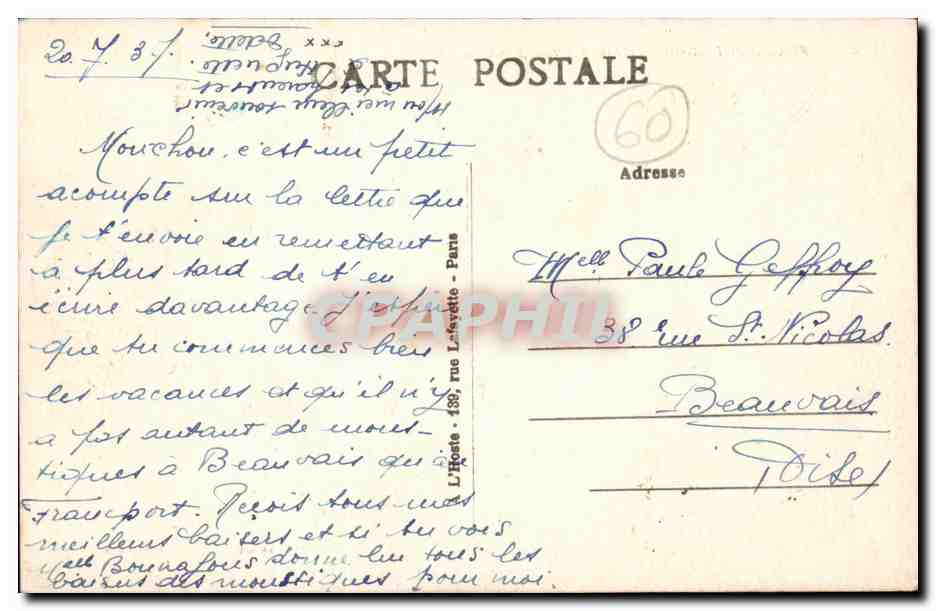 20.7.37.
CARTE POSTALE
60
Adresse
Mon meilleur souvenir
à tes parents et
à Huguette.
Odette,
xxx
Mouchou, c'est un petit
acompte sur la lettre que
je t'envoie en remettant
a plus tard de t'en
écrire davantage. J'espère
que tu commences bien
les vacances et qu'il n'y
a pas autant de mous-
tiques à Beauvais qu'à
Francport. Reçois tous mes
meilleurs baisers et si tu vois
Melle Bonnafous donne lui tous les
baisers des moustiques pour moi.
A L'Hoste - 139, rue Lafayette - Paris
Melle Paule Geffroy
38 rue St. Nicolas.
Beauvais
(Oise)
CPAPHIL